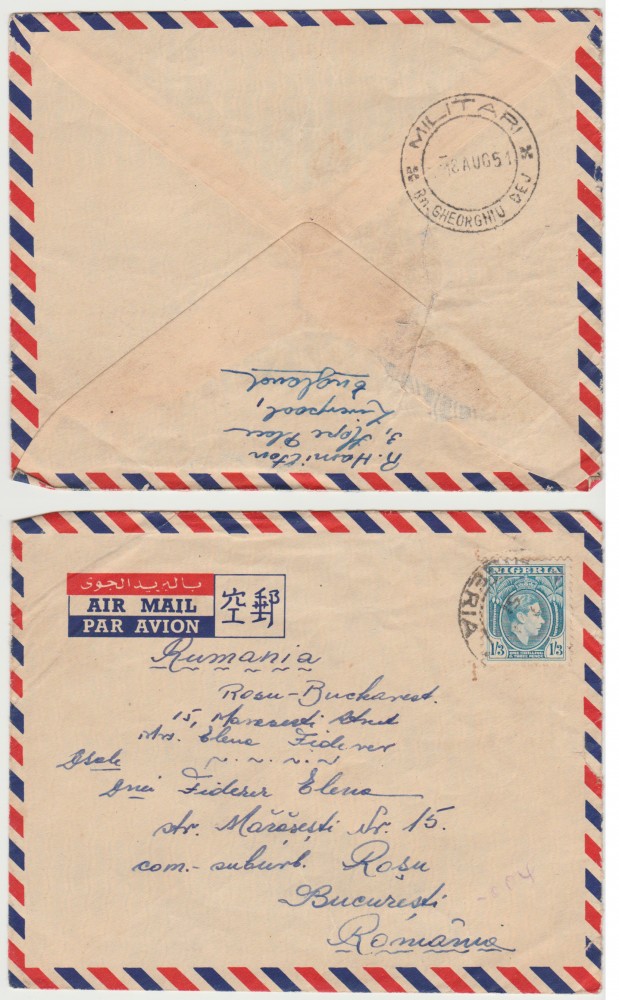 MILITARI
-8 AUG 51
RN. GHEORGHIU DEJ
R. Hamilton
3, Hope Place
Liverpool,
England
بالبريد الجوى
AIR MAIL
PAR AVION
空郵
NIGERIA
1/3
1/3
ERIA
Rumania
Rosu-Bucharest.
15, Marasesti Street
Mrs. Elena Fiderer
Dsale
Dnei Fiderer Elena
str. Mărăşeşti Nr. 15.
com.- suburb. Roşu
Bucureşti
România